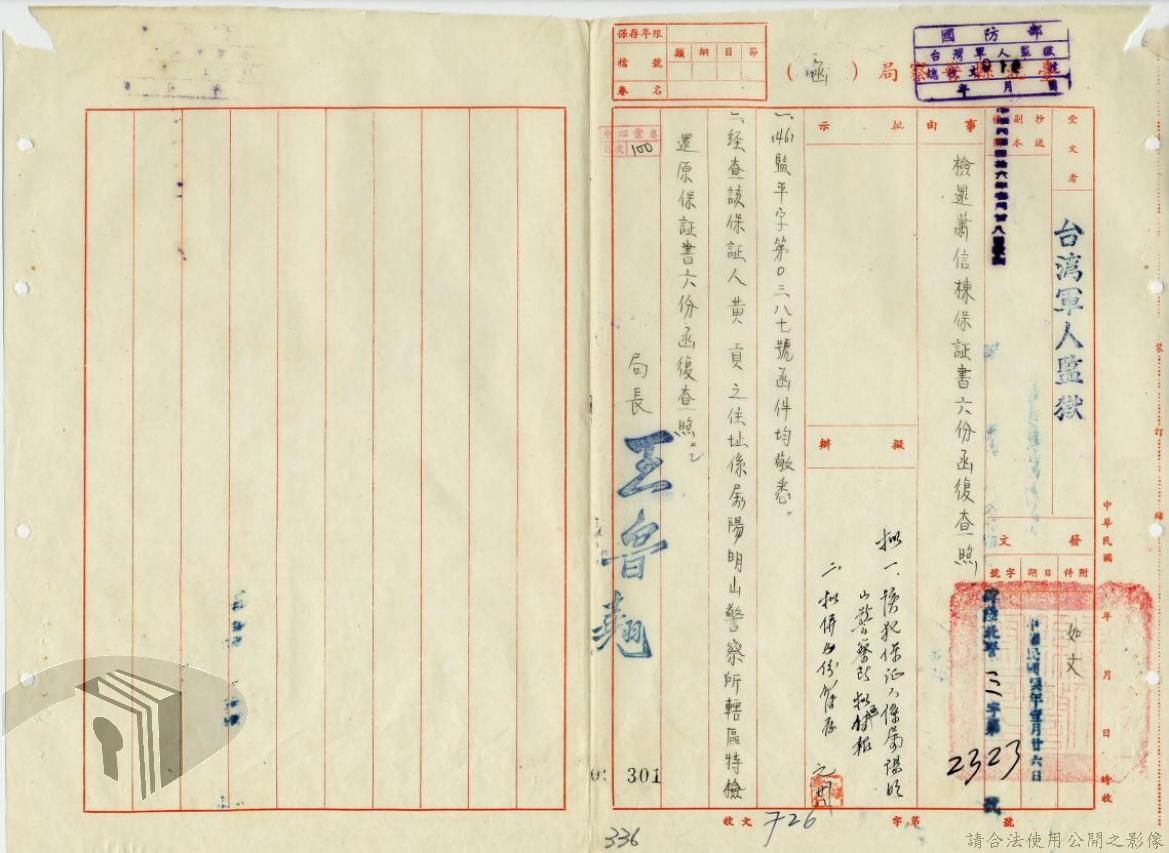 國防部
台灣軍人監獄
年 月 日
局（函）
保存年限
檔號
卷名
類 綱 目 節
受文者
台湾軍人監獄
抄送
副本
發文
附件
如文
日期
中華民國四六年壹月廿六日
字號
字第
2323
號
中華民國 年 月 日 時收
事由
檢還蕭信棟保証書六份函復查照
批示
擬辦
擬 一、該犯保证人係屬陽明
山警察所
二、擬併
一、(46)監平字第0三八七號函件均敬悉。
二、経查該保証人黄貢之住址係屬陽明山警察所轄區特檢
還原保証書六份函復查照。
局長
王魯翹
100
301
336
收文
726
字第
號
裝 訂 線
請合法使用公開之影像